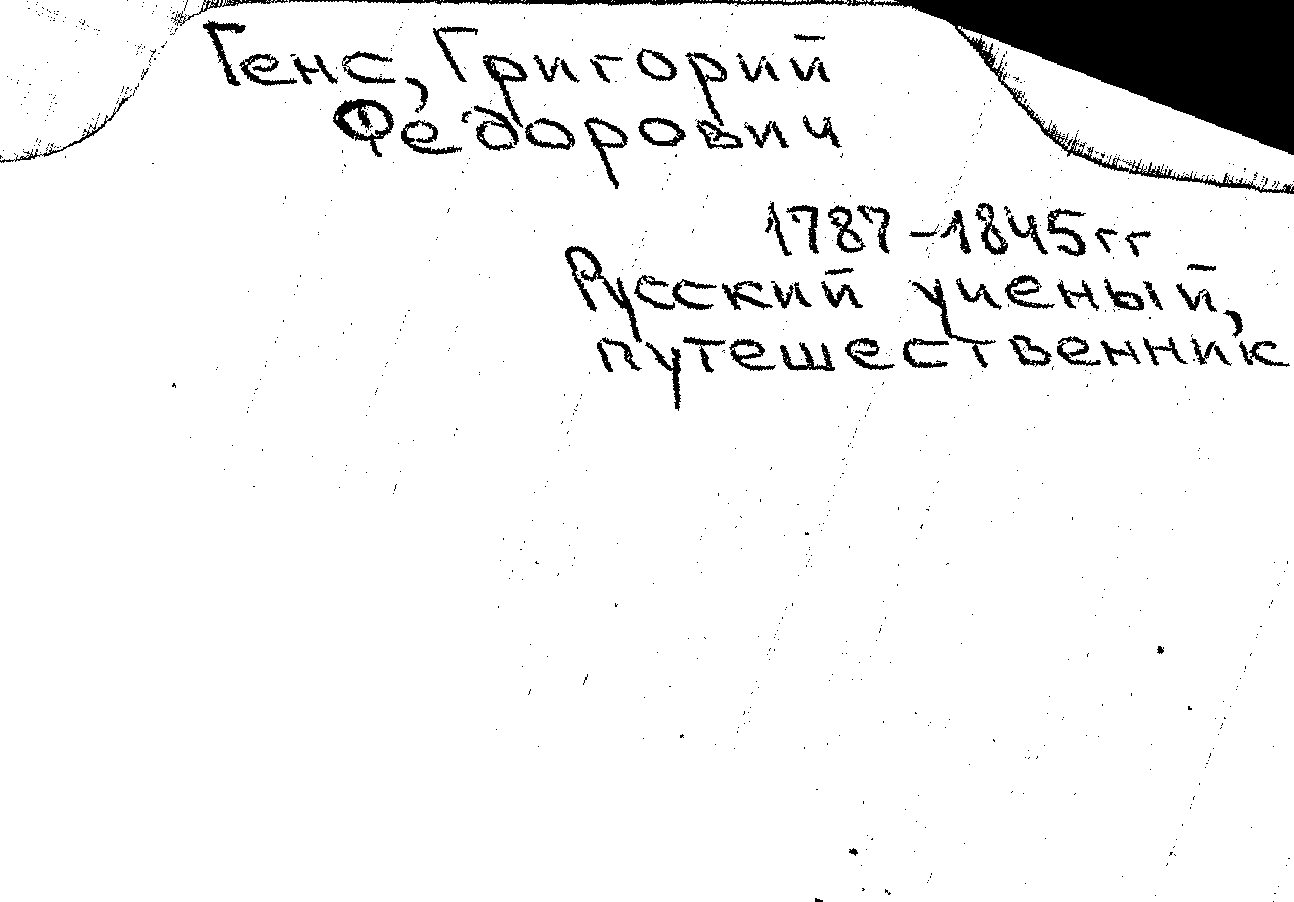 Генс, Григорий
Федорович
1787-1845гг
Русский ученый,
путешественник